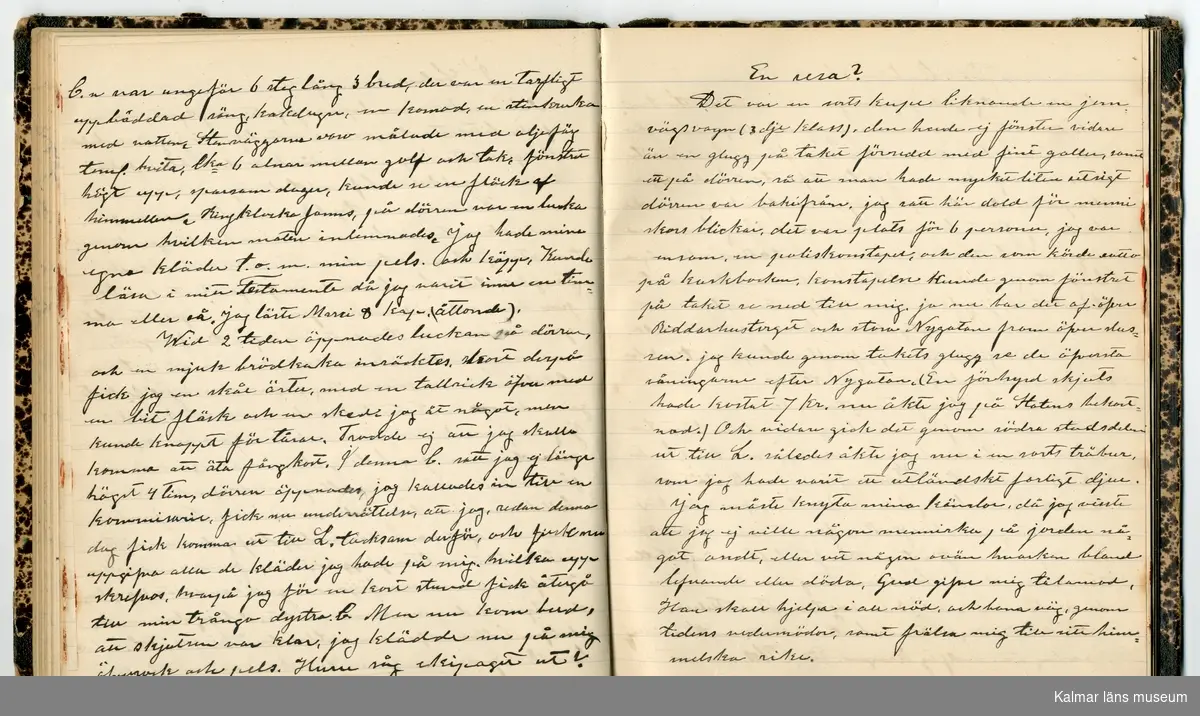 C.n var ungefär 6 steg lång 3 bred, der var en tarfligt
uppbäddad säng, kakelugn, en komod, en stenkruka
med vatten, Stenväggarne voro målade med oljefärg
hvita, c:a 6 alnar mellan golf och tak, fönstret
högt uppe, sparsam dager, kunde se en fläck af
himmelen, Ringklocka fanns, på dörren var en lucka
genom hvilken maten inlemnades, Jag hade mina
egna kläder t.o.m. min pels och käpp, Kunde
läsa i mitt testamente då jag varit inne en tim-
ma eller så, Jag läste Marci 8 Kap. (åttonde).
Wid 2 tiden öppnades luckan på dörren,
och en mjuk brödkaka inräcktes, kort derpå
fick jag en skål ärter, med en tallrick öfver med
en bit fläck och en sked; jag åt något, men
kunde knappt för tårar. Trodde ej att jag skulle
komma att äta fångkost. I denna C. satt jag ej länge
högst 4 tim, dörren öppnades, jag kallades in till en
kommisarie, fick nu underrättelse, att jag, redan denna
dag fick komma ut till L. tacksam derför, och fick nu
uppgifva alla de kläder jag hade på mig, hvilka upp
skrefvos, hvarpå jag för en kort stund fick återgå
till min trånga dystra C. Men nu kom bud,
att skjutsen var klar, jag klädde nu på mig
och pels. Huru såg ekipaget ut?
En resa?
Det var en sorts kupe liknande en jern-
vägsvagn (3dje klass), den hade ej fönster vidare
än en glugg på taket försedd med fint galler, samt
ett på dörren, så att man hade mycket liten utsigt
dörren var bakifrån, jag satt här dold för menni
skors blickar, det var plats för 6 personer, jag var
ensam, en poliskonstapel, och den som körde satto
på kuskbocken, konstapeln kunde genom fönstret
på taket se ned till mig, ja nu bar det af öfver
Riddarhustorget och stora Nygatan fram öfver slus-
sen. jag kunde genom takets glugg se de öfversta
våningarne efter Nygatan, (En förhyrd skjuts
hade kostat 7 kr. nu åkte jag på Statens bekost-
nad.) Och vidare gick det genom södra stadsdelen
ut till L. således åkte jag nu i en sorts träbur,
som jag hade varit ett utländskt farligt djur.
Jag måste knyta mina känslor, då jag visste
att jag ej ville någon menniska på jorden nå-
got ondt, eller vet någon ovän hvarken bland
lefvande eller döda, Gud gifve mig tålamod,
Han skall hjelpa i all nöd, och bana väg, genom
tidens vedermödor, samt frälsa mig till sitt him-
melska rike.
Kalmar läns museum